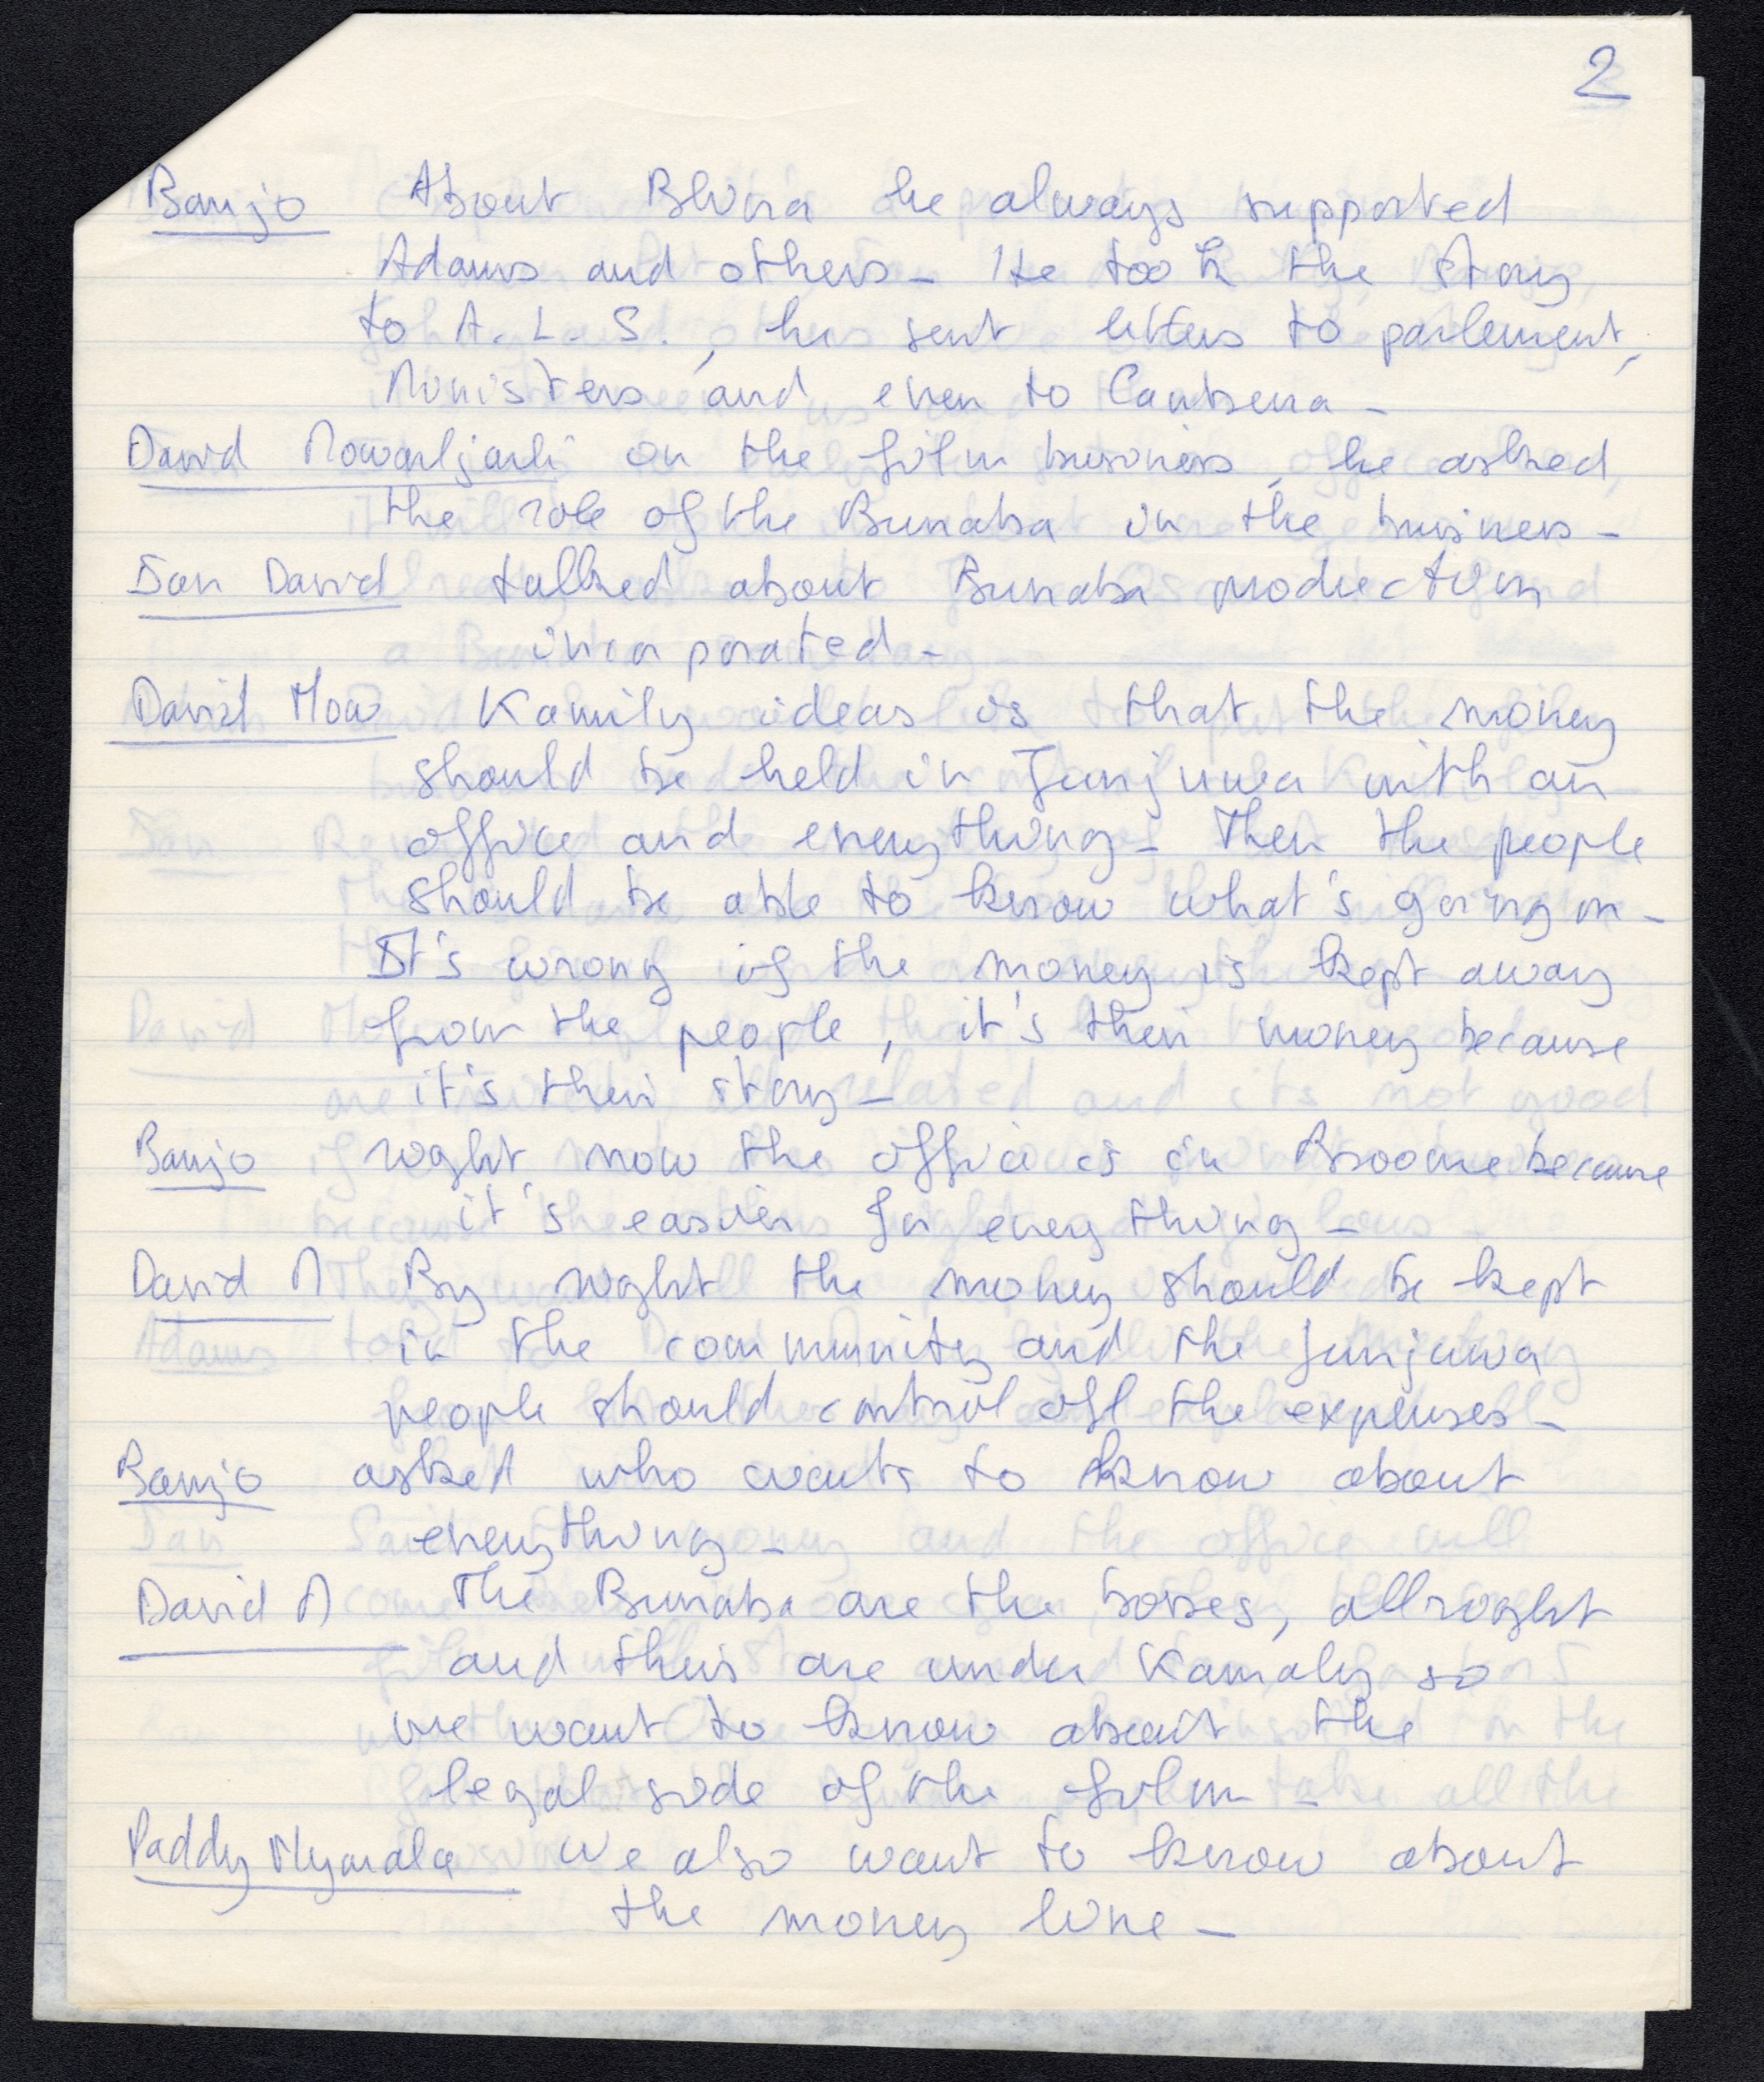 2
Banjo About Blina he always supported
Adams and others - He took the story
to A. L. S., his sent letters to parlement,
Ministers and even to Canberra -
David Mowarljarli on the film business, he asked
the role of the Bunaba in the business -
Ian David talked about Bunaba production
incorporated -
David Mow Kamily ideas is that the money
should be held in Junjuwa with an
office and everything - Then the people
should be able to know what's going on -
It's wrong if the money is kept away
from the people, it's their money because
it's their story -
Banjo right now the office is in Broome because
it's easier for everything -
David M By right the money should be kept
in the community and the Junjuwa
people should control all the expenses -
Banjo asked who wants to know about
everything -
David M The Bunaba are the bosses, allright
and this are under Kamaly so
we want to know about the
legal side of the film -
Paddy We also want to know about
the money line -